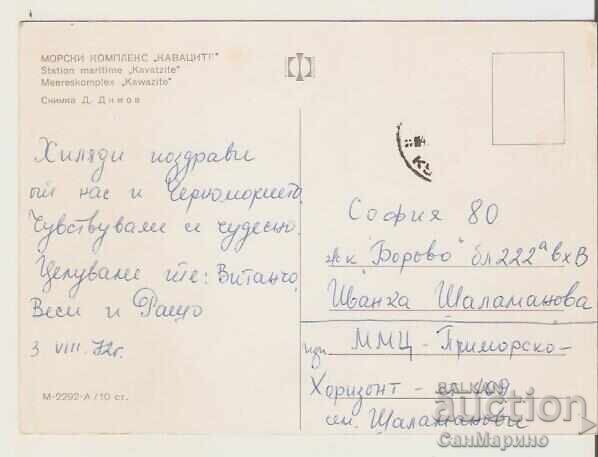 МОРСКИ КОМПЛЕКС „КАВАЦИТЕ"
Station maritime „Kavatzite"
Meereskomplex „Kawazite"
Снимка Д. Димов
Хиляди поздрави
от нас и Черноморието.
Чувствуваме се чудесно.
Целуваме те: Витанчо,
Веси и
3 VIII. 72г.
М-2292-А / 10 ст.
София 80
ж.к "Борово" бл 222ᵃ вх В
Иванка Шаламанова
ММЦ - Приморско -
Хоризонт - 409
сем. Шаламанови
BALKAN
auction
СанМарино